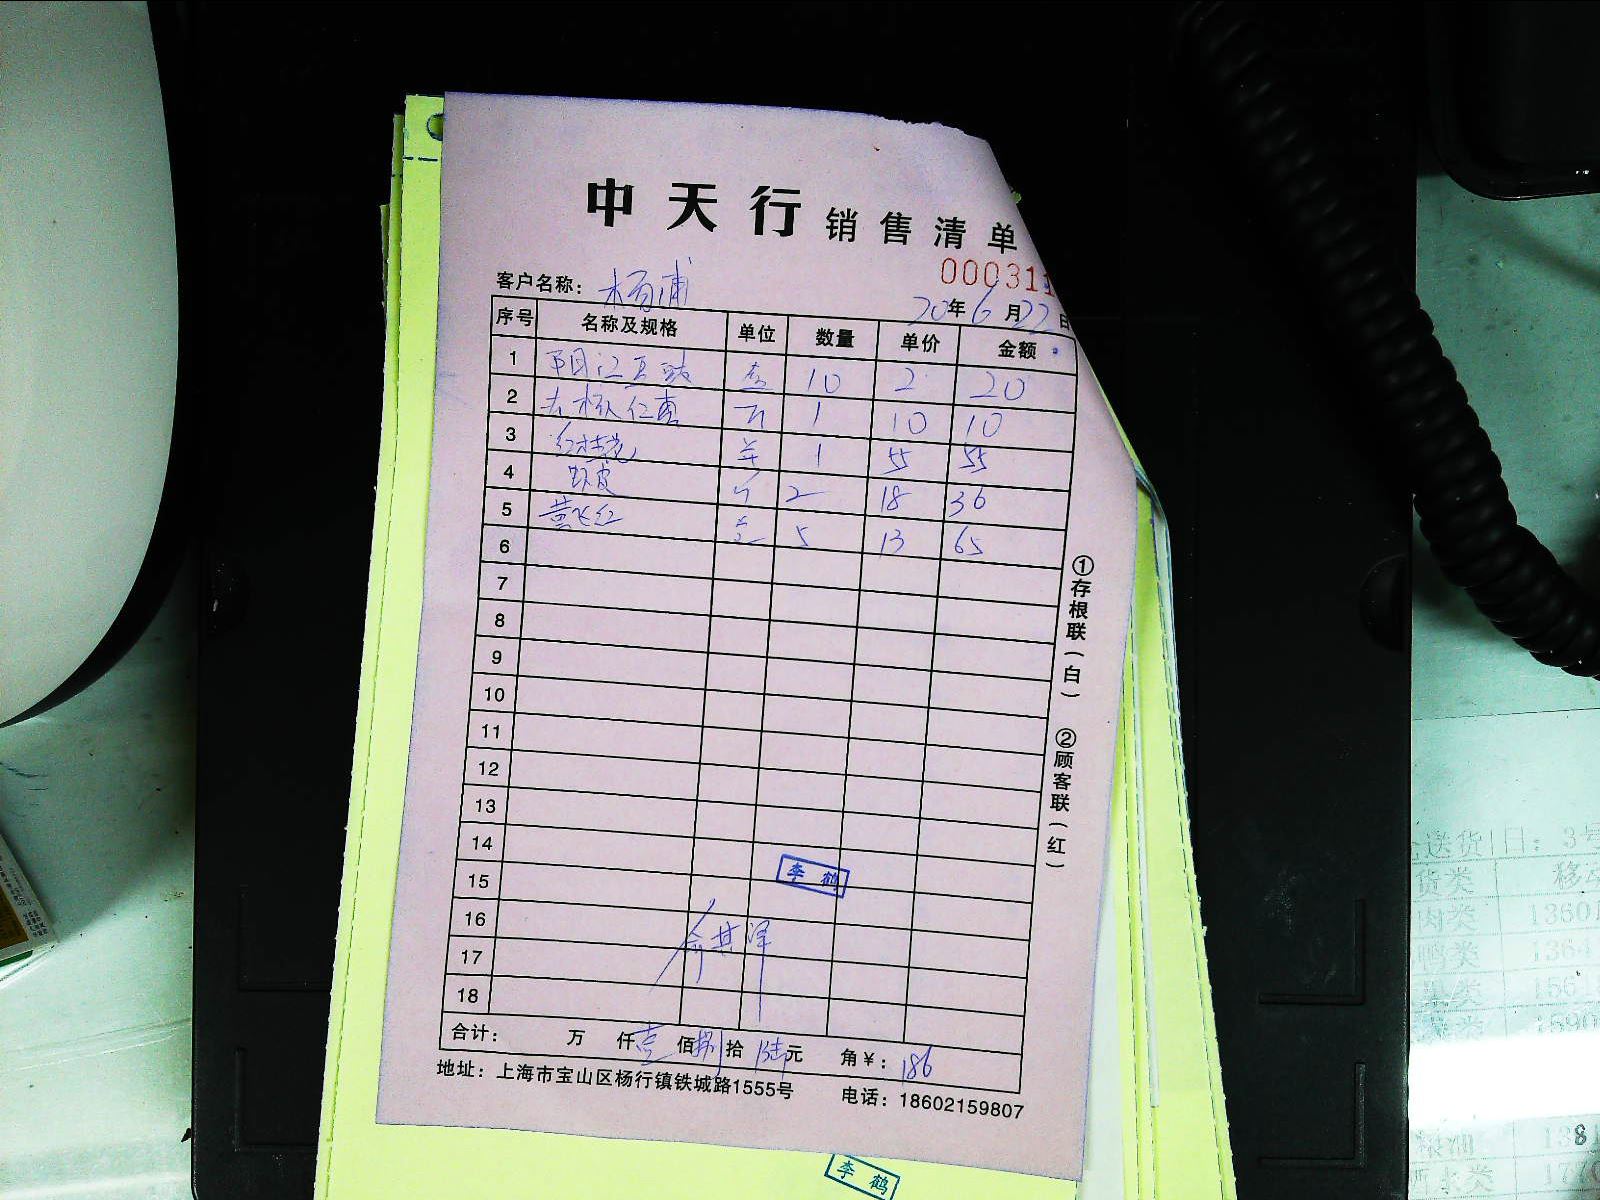 中天行 销售清单
00031
客户名称： 杨浦 20年6月22日
序号 名称及规格 单位 数量 单价 金额
1 阳江豆豉 盒 10 2 20
2 去核红枣 1 10 10
3 红桂花 1 55 55
4 虾皮 斤 2 18 36
5 营飞红 5 13 65
6
7
8
9
10
11
12
13
14
15
16
17
18
李鹤
合计： 万 仟壹佰捌拾陆元 角￥： 186
地址：上海市宝山区杨行镇铁城路1555号 电话：18602159807
①存根联（白） ②顾客联（红）
李鹤
送货 日：3号
货类 移动
肉类 1360
鸭类 1364
粮油 1381
西水类 177